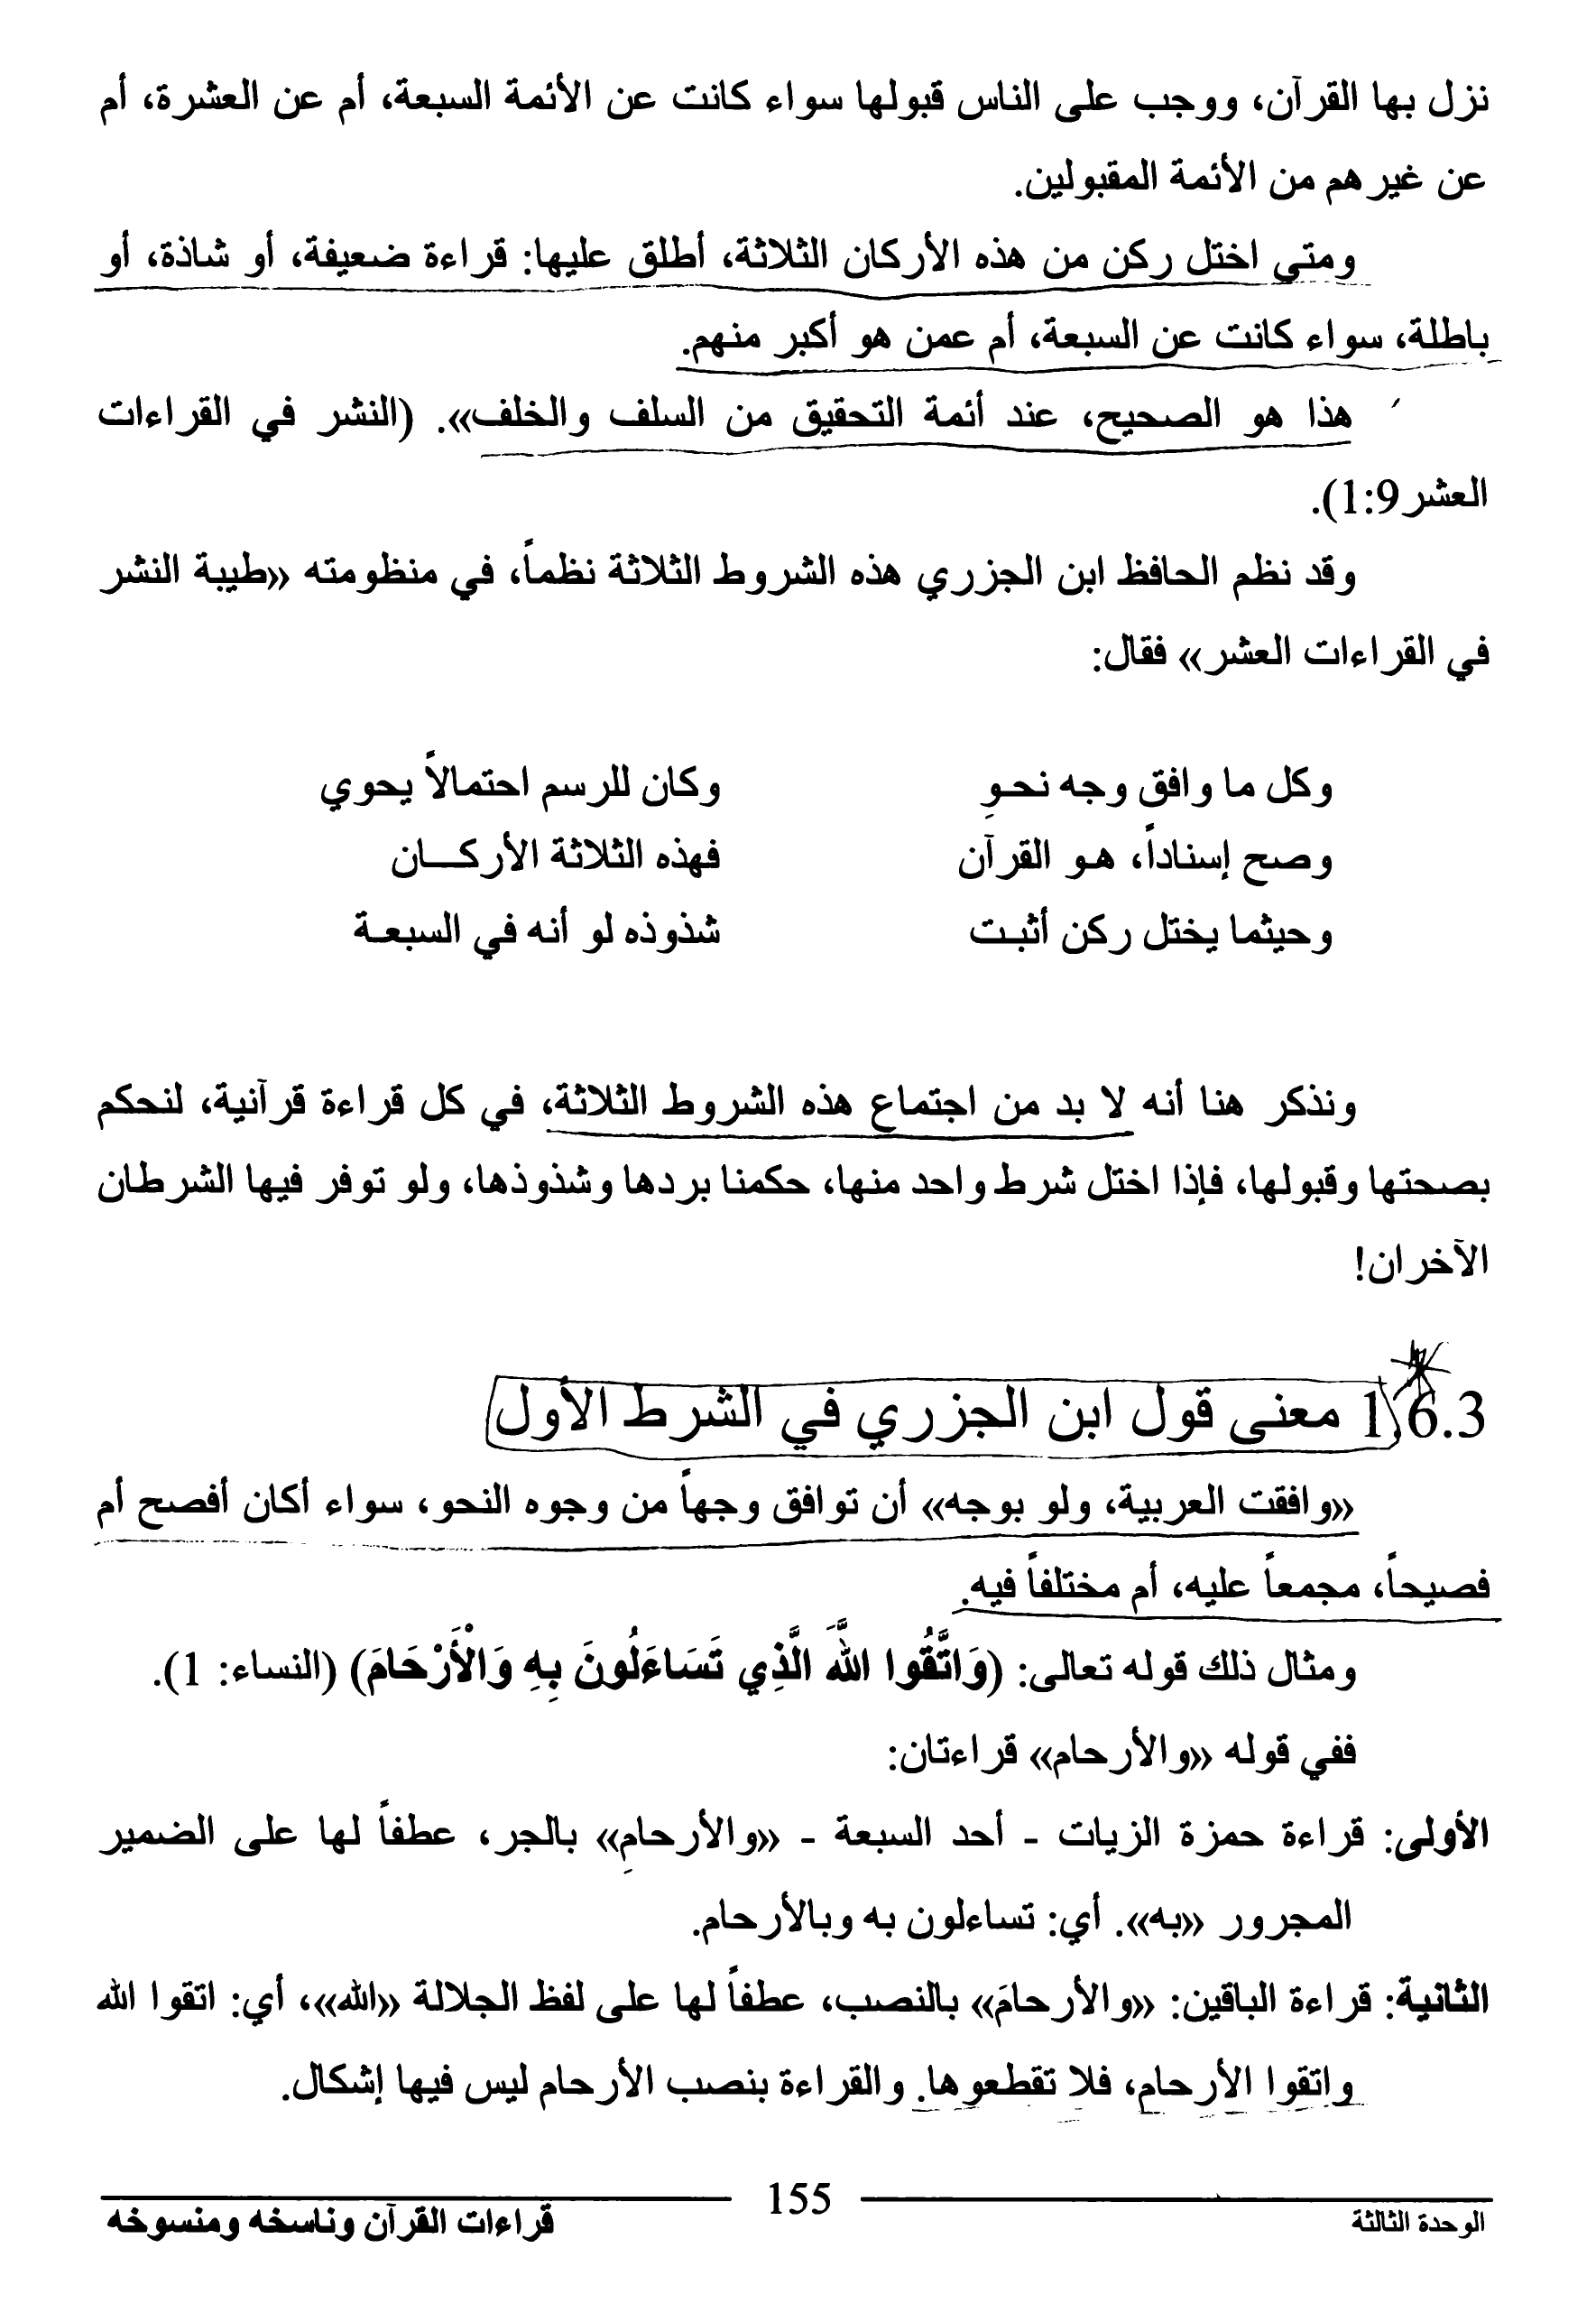 نزل بها القرآن، ووجب على الناس قبولها سواء كانت عن الأئمة السبعة، أم عن العشرة، أم
عن غيرهم من الأئمة المقبولين.
ومتى اختل ركن من هذه الأركان الثلاثة، أطلق عليها: قراءة ضعيفة، أو شاذة، أو
باطلة، سواء كانت عن السبعة، أم عمن هو أكبر منهم.
هذا هو الصحيح، عند أئمة التحقيق من السلف والخلف». (النشر في القراءات
العشر1:9).
وقد نظم الحافظ ابن الجزري هذه الشروط الثلاثة نظماً، في منظومته «طيبة النشر
في القراءات العشر» فقال:
وكل ما وافق وجه نحوٍ وكان للرسم احتمالاً يحوي
وصح إسناداً، هو القرآن فهذه الثلاثة الأركـــان
وحيثما يختل ركن أثبت شذوذه لو أنه في السبعة
ونذكر هنا أنه لا بد من اجتماع هذه الشروط الثلاثة، في كل قراءة قرآنية، لنحكم
بصحتها وقبولها، فإذا اختل شرط واحد منها، حكمنا بردها وشذوذها، ولو توفر فيها الشرطان
الآخران!
1.6.3 معنى قول ابن الجزري في الشرط الأول
«وافقت العربية، ولو بوجه» أن توافق وجهاً من وجوه النحو، سواء أكان أفصح أم
فصيحاً، مجمعاً عليه، أم مختلفاً فيه.
ومثال ذلك قوله تعالى: (وَاتَّقُوا اللَّهَ الَّذِي تَسَاءَلُونَ بِهِ وَالْأَرْحَامَ) (النساء: 1).
ففي قوله «والأرحام» قراءتان:
الأولى: قراءة حمزة الزيات - أحد السبعة - «والأرحامِ» بالجر، عطفاً لها على الضمير
المجرور «به». أي: تساءلون به وبالأرحام.
الثانية: قراءة الباقين: «والأرحامَ» بالنصب، عطفاً لها على لفظ الجلالة «الله»، أي: اتقوا الله
واتقوا الأرحام، فلا تقطعوها. والقراءة بنصب الأرحام ليس فيها إشكال.
الوحدة الثالثة 155 قراءات القرآن وناسخه ومنسوخه